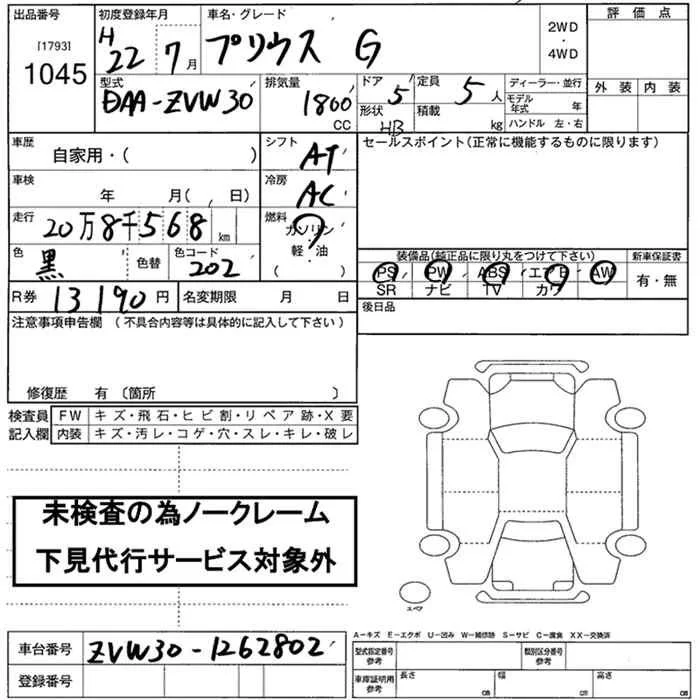 出品番号 初度登録年月 車名・グレード 評価点
[1793] H 22 7 月 プリウス G 2WD ・ 4WD
1045
型式 排気量 ドア 定員 ディーラー・並行 外装 内装
DAA-ZVW30 1800 CC 5 5 人 モデル年式 年
形状 HB 積載 kg ハンドル 左・右
車歴 自家用・( ) シフト AT セールスポイント(正常に機能するものに限ります)
車検 年 月( 、 日) 冷房 AC
走行 20万8千568 km 燃料 ガソリン 軽・油 ( )
色 黒 色替 色コード 202 装備品(純正品に限り丸をつけて下さい) 新車保証書
PS PW ABS エアB AW 有・無
SR ナビ TV カワ
R券 13190 円 名変期限 月 日 後日品
注意事項申告欄 (不具合内容等は具体的に記入して下さい)
修復歴 有 〔箇所 〕
検査員 FW キズ・飛石・ヒビ割・リペア跡・X要
記入欄 内装 キズ・汚レ・コゲ・穴・スレ・キレ・破レ
未検査の為ノークレーム
下見代行サービス対象外
スペア
A−キズ E−エクボ U−凹み W−補修跡 S−サビ C−腐食 XX−交換済
車台番号 ZVW30-1262802 型式指定番号 参考 類別区分番号 参考
登録番号 車庫証明用 参考 長さ cm 幅 cm 高さ cm